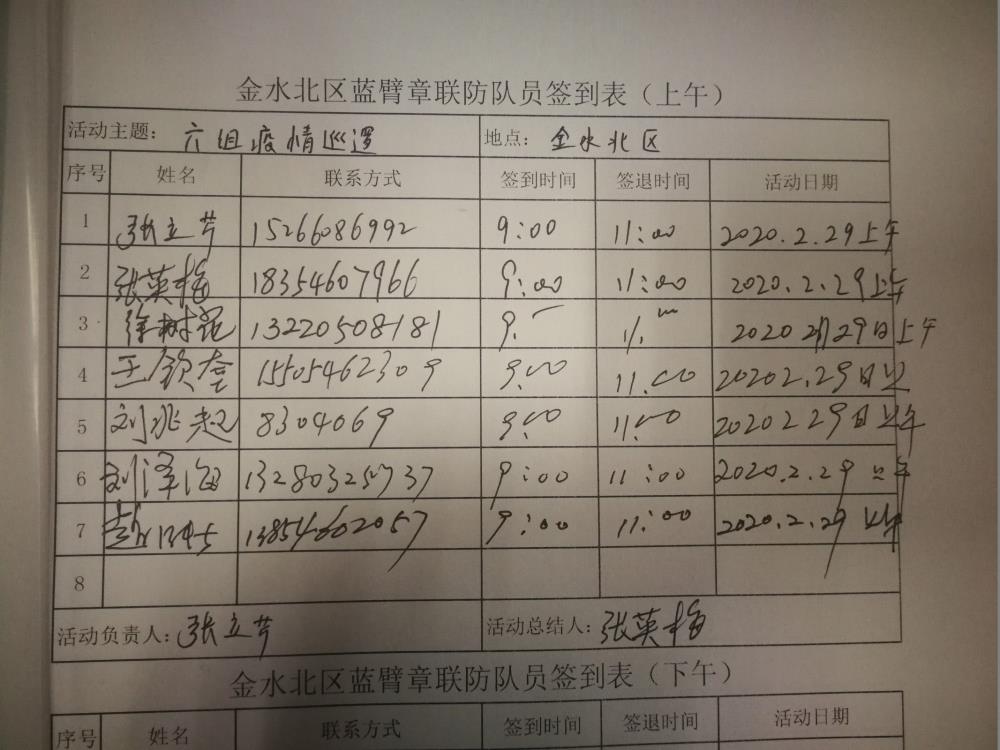 金水北区蓝臂章联防队员签到表（上午）
活动主题： 六组疫情巡逻 地点： 金水北区
序号 姓名 联系方式 签到时间 签退时间 活动日期
1 张立芹 15266086992 9:00 11:00 2020.2.29上午
2 张英梅 18354607966 9:00 11:00 2020.2.29上午
3 徐树花 13220508181 9. 11. 2020 2月29日上午
4 王钦奎 15505462309 9.00 11.00 2020 2.29日上
5 刘兆超 8304069 9.00 11.00 2020 2 29日上午
6 刘泽海 13280325737 9:00 11:00 2020.2.29 上午
7 赵 13854602057 9:00 11:00 2020.2.29 上午
8
活动负责人：张立芹 活动总结人：张英梅
金水北区蓝臂章联防队员签到表（下午）
序号 姓名 联系方式 签到时间 签退时间 活动日期